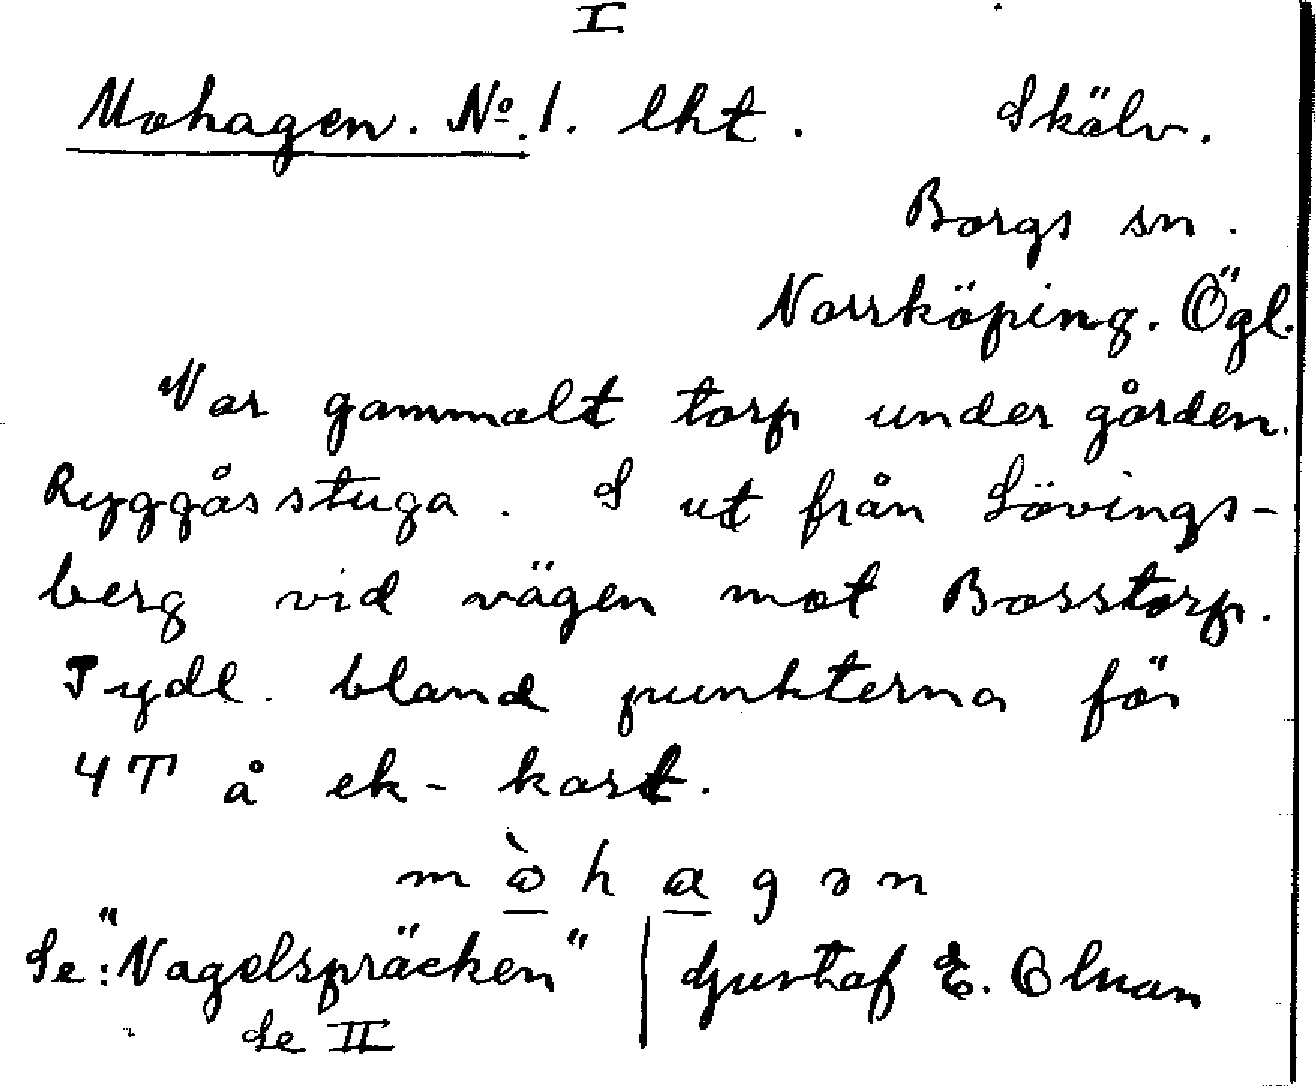 I
Mohagen. No. 1. lht. Skälv.
Borgs sn.
Norrköping. Ögl.
Var gammalt torp under gården.
Ryggåsstuga. S ut från Lövings-
berg vid vägen mot Bosstorp.
Tydl. bland punkterna för
4T å ek-kart.
m ò h a g ə n
Se: "Nagelspräcken" Gustaf E. Elman
Se II